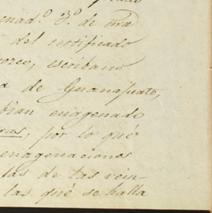 enad.º 3.º de ma
del rectificado
orez, escribano
a de Guanajuato,
bian enagenado
por lo qué
enagenaciones
las de las vein-
las qué se halla